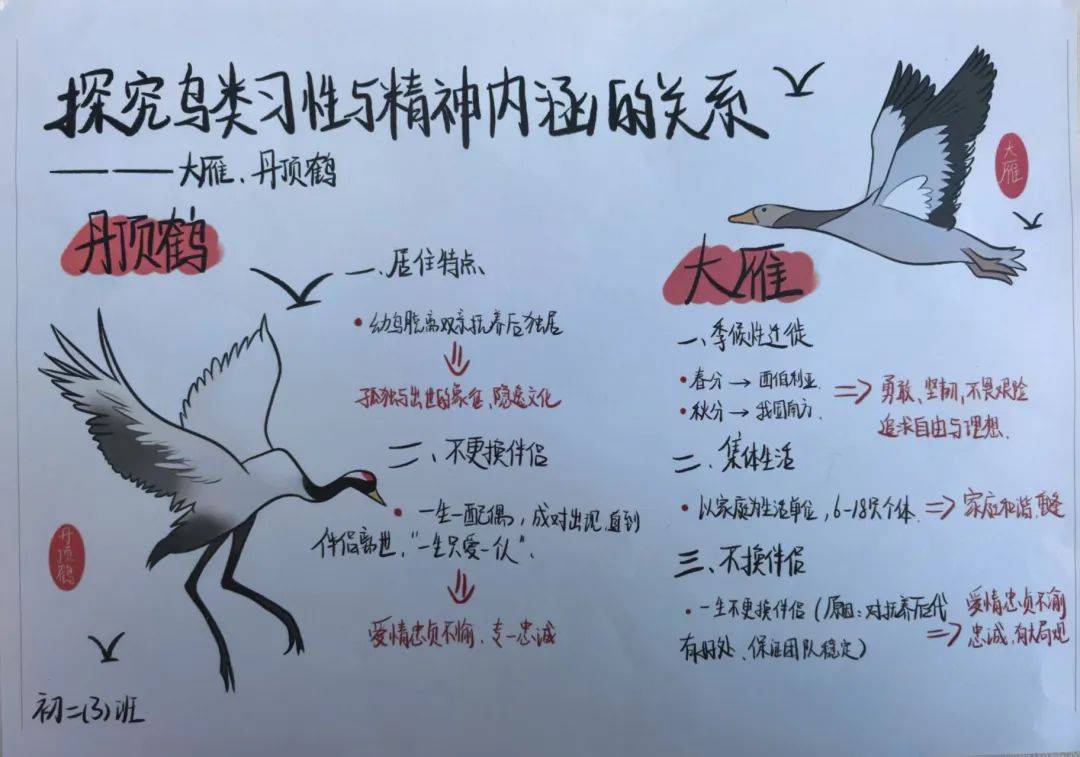 探究鸟类习性与精神内涵的关系
——大雁、丹顶鹤
丹顶鹤
一、居住特点
•幼鸟脱离双亲抚养后独居
孤独与出世的象征、隐逸文化
二、不更换伴侣
•一生一配偶，成对出现，直到
伴侣离世，"一生只爱一个".
爱情忠贞不愉、专一忠诚
丹顶鹤
初二(3)班
大雁
大雁
一、季候性迁徙
•春分→西伯利亚.
•秋分→我国南方.
=>勇敢、坚韧,不畏艰险
追求自由与理想.
二、集体生活
•以家庭为生活单位，6-18只个体.=>家庭和谐、重逢
三、不换伴侣
•一生不更换伴侣(原因:对抚养后代
有好处、保证团队稳定)
=>爱情忠贞不渝
忠诚,有大局观